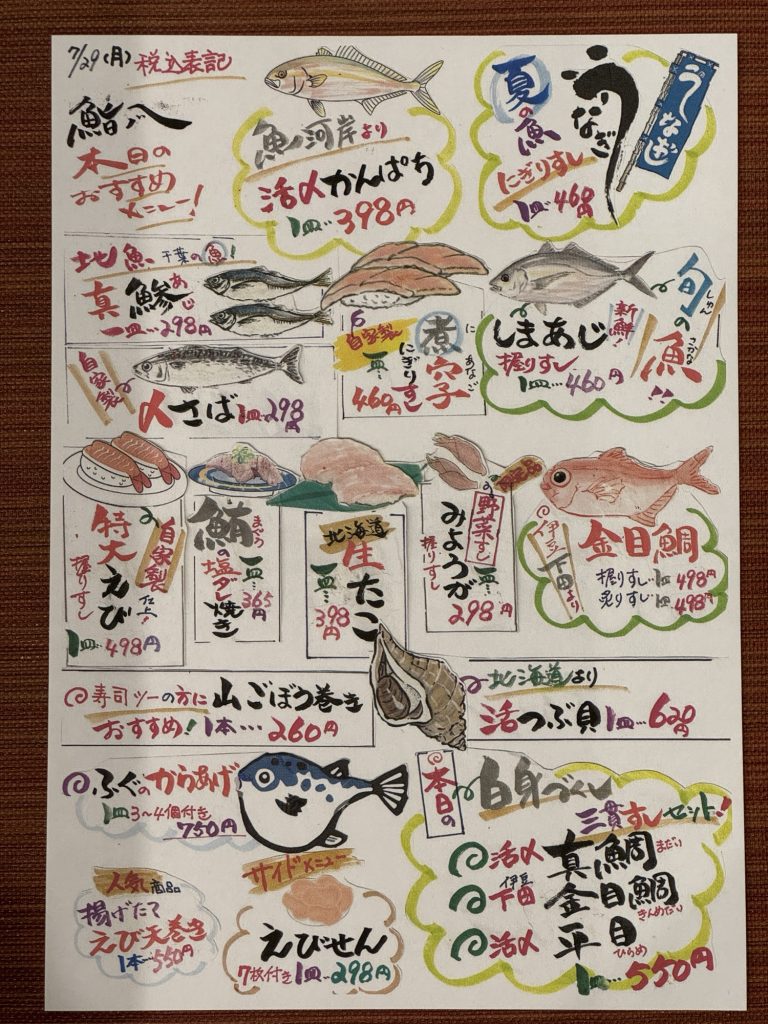 7/29(月) 税込表記
鮨八
本日の
おすすめ
メニュー!
魚河岸より
活〆かんぱち
1皿…398円
夏の魚
うなぎ
にぎりすし
1皿…468円
うなぎ
地魚 千葉の魚!
真鯵 あじ
一皿…298円
自家製
〆さば 1皿…298円
自家製
煮穴子 にあなご
にぎりすし
一皿…460円
旬の魚!! しゅん さかな
しまあじ 新鮮!
握りすし
1皿…460円
特大えび
握りすし
自家製 仕上!
1皿…498円
鮪の塩ダレ焼き まぐろ
一皿…365円
北海道
生たこ
一皿…398円
野菜すし
みょうが
握りすし
一皿…298円
伊豆下田より
金目鯛
握りすし…1皿498円
炙りすし…1皿498円
寿司ツーの方に 山ごぼう巻き
おすすめ! 1本…260円
北海道より
活つぶ貝 1皿…620円
ふぐのからあげ
1皿3〜4個付き
750円
本日の
白身づくし
三貫すしセット!
活〆 真鯛 まだい
伊豆下田 金目鯛 きんめだい
活〆 平目 ひらめ
1皿…550円
人気商品
揚げたて
えび天巻き
1本…550円
サイドメニュー
えびせん
7枚付き 1皿…298円